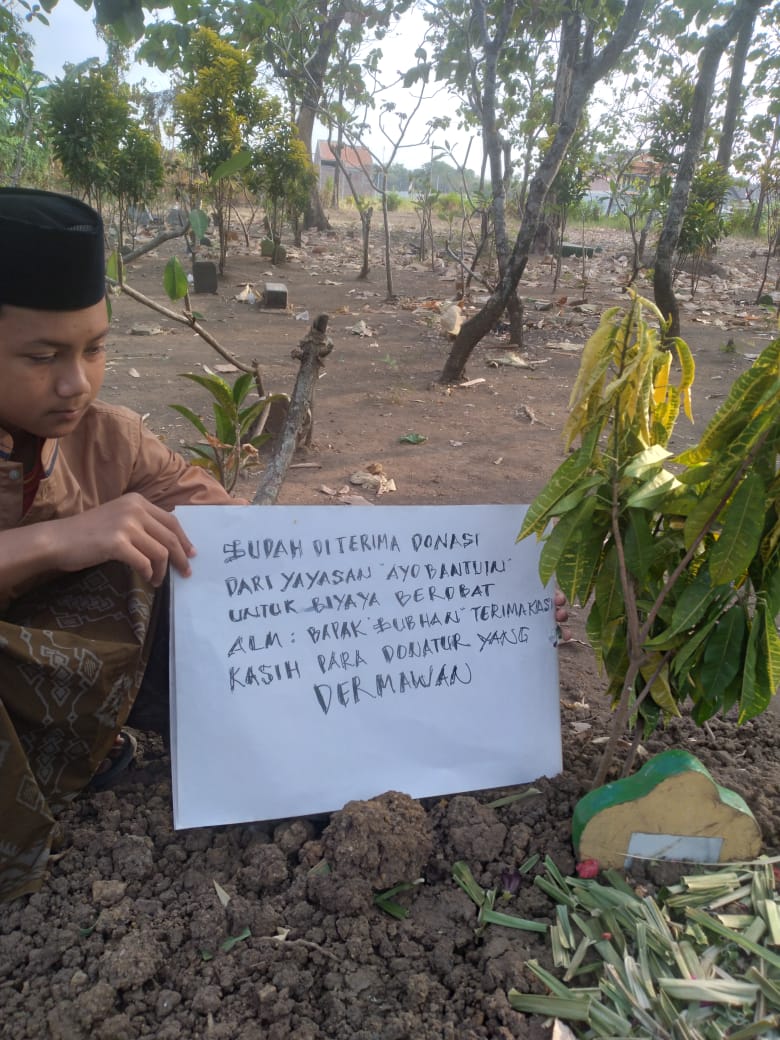 SUDAH DITERIMA DONASI
DARI YAYASAN "AYO BANTUIN"
UNTUK BIYAYA BEROBAT
ALM : BAPAK "SUBHAN" TERIMAKASI
KASIH PARA DONATUR YANG
DERMAWAN